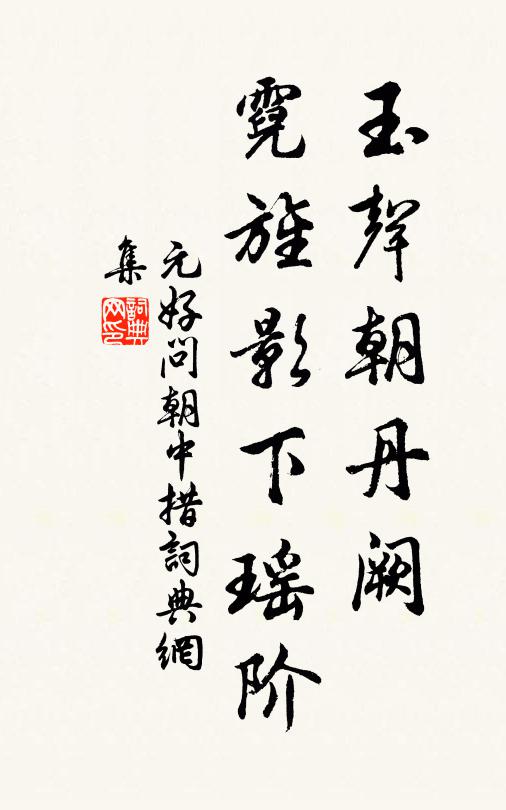 玉聲朝丹阙
霓旌影下瑶阶
元好问朝中措詞典網
集
詞典网印